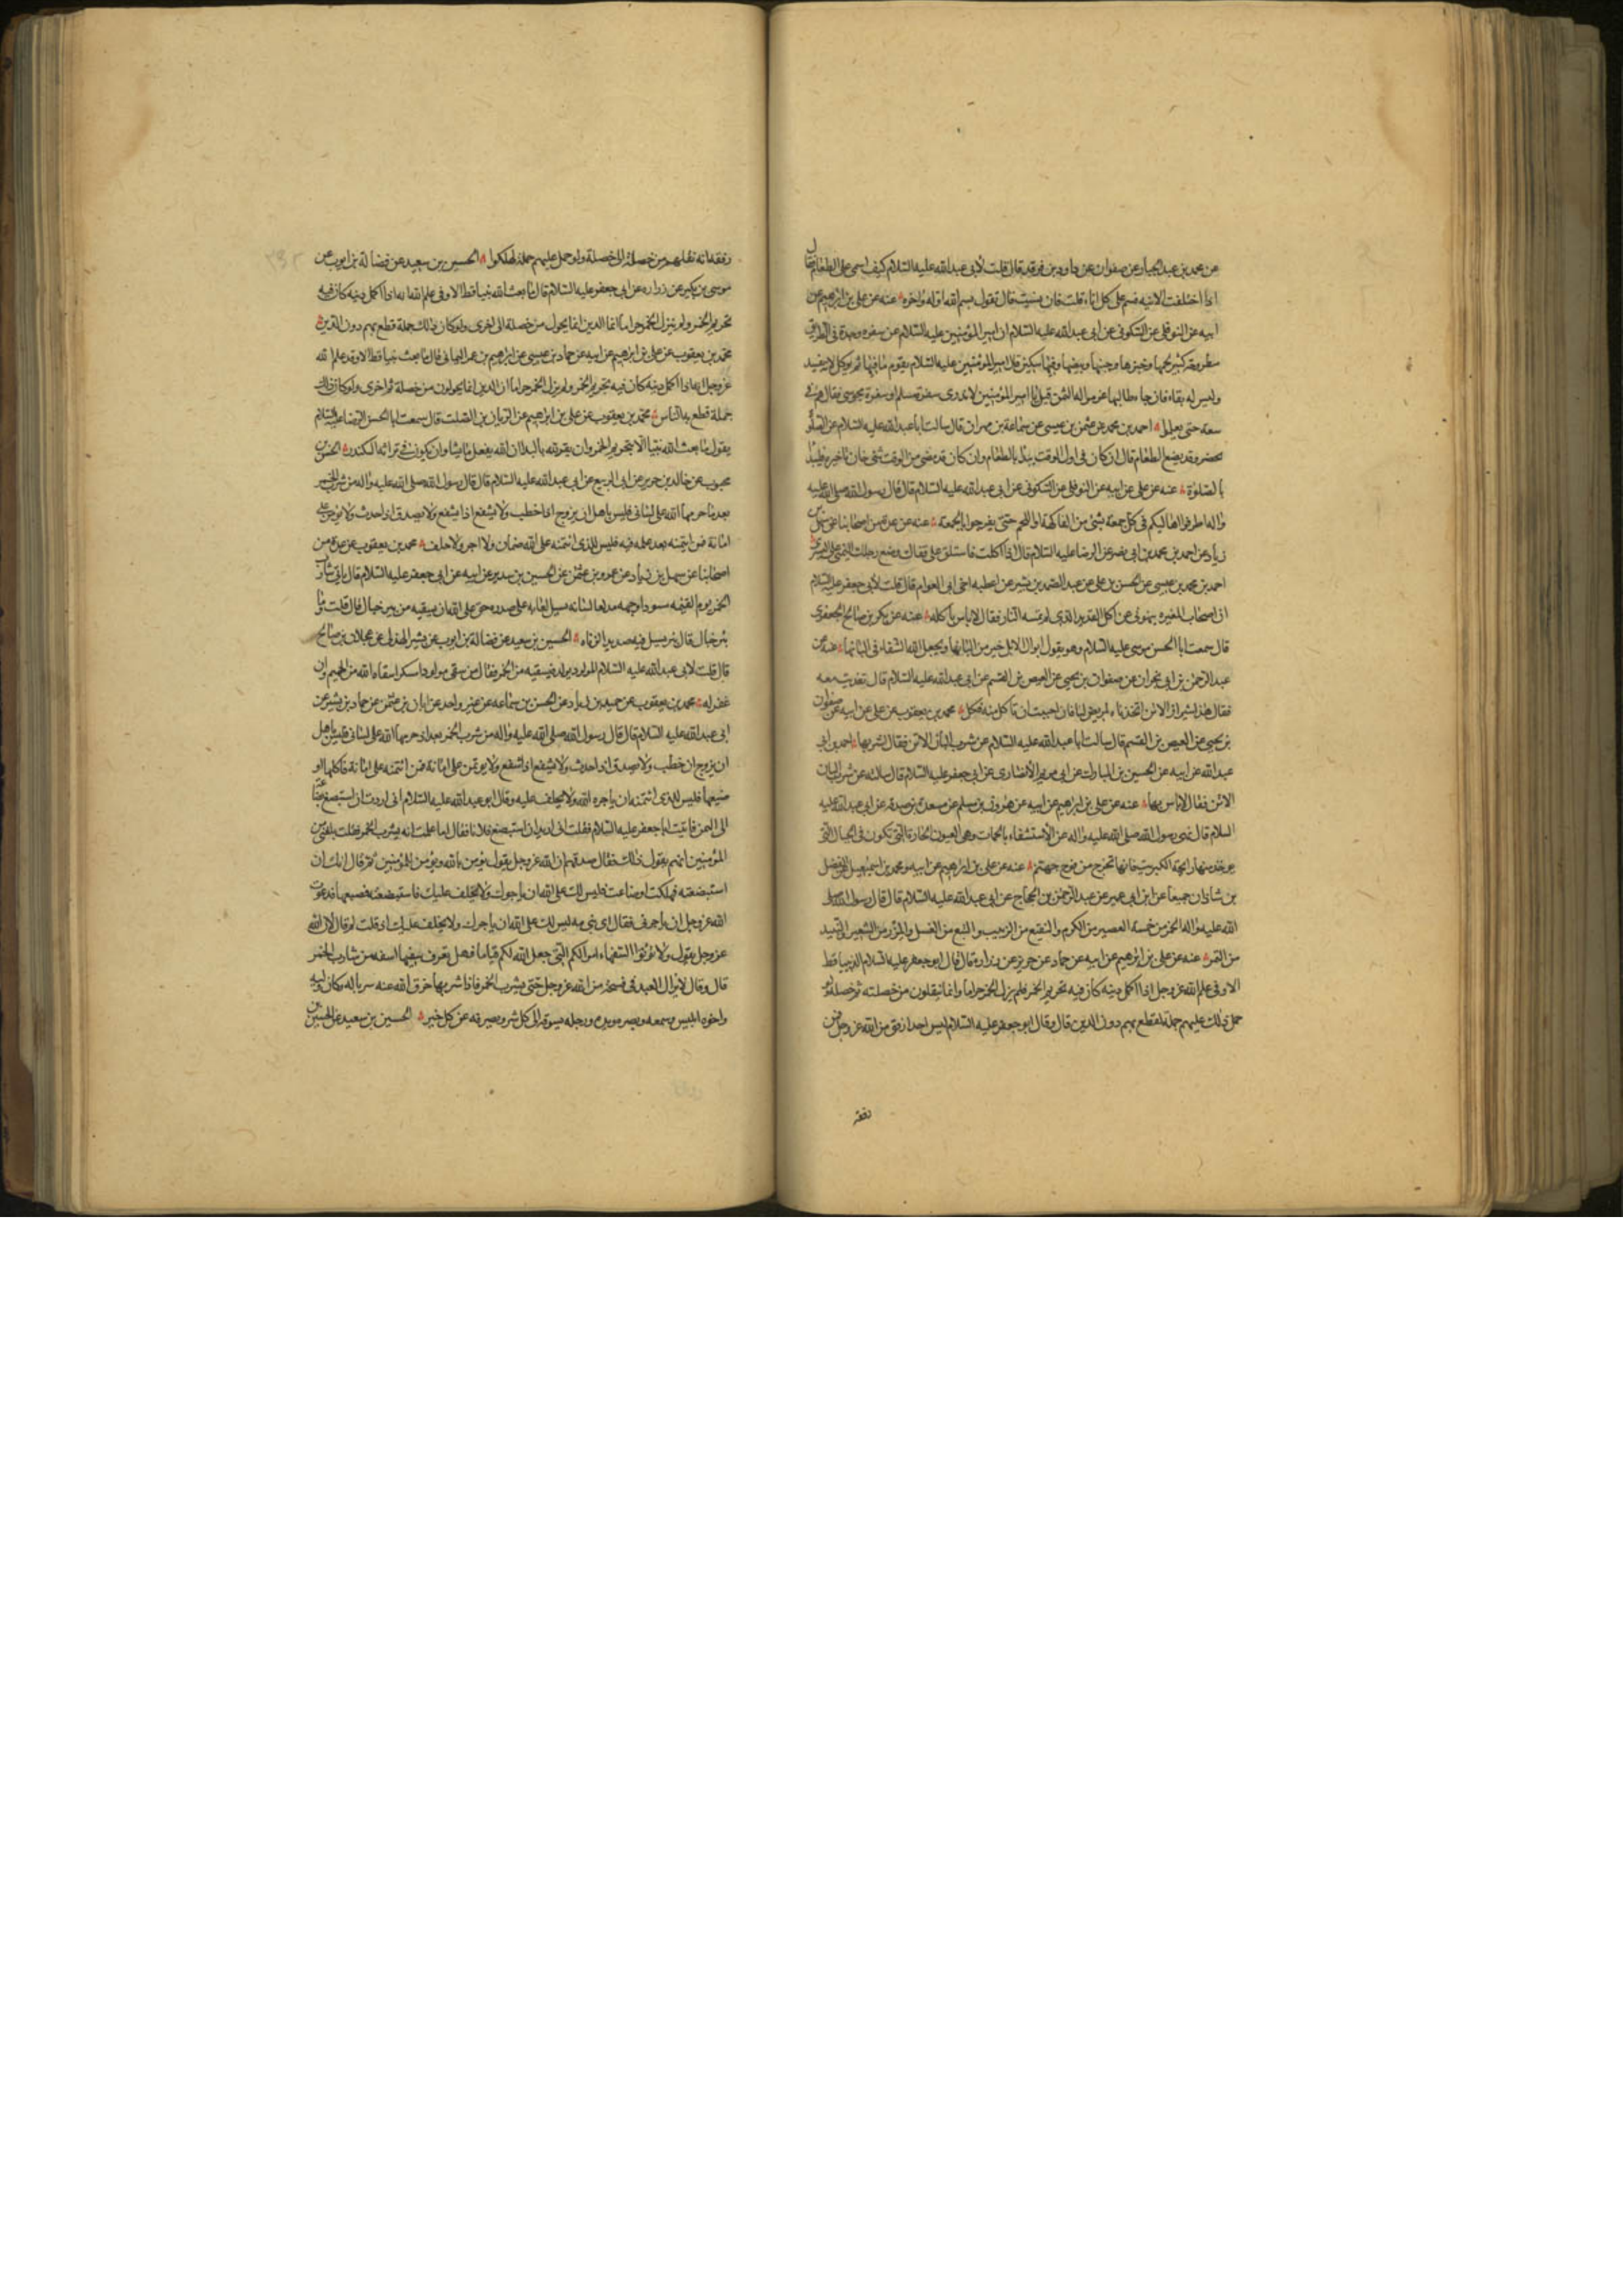 عن محمد بن عبد الجبار عن صفوان عن داود بن فرقد قال قلت لابي عبد الله عليه السلام كيف اسمي على الطعام فقال
اذا اختلفت الانيه فسم على كل اناء قلت فان نسيت قال تقول بسم الله اوله واخره عنه عن علي بن ابرهيم عن
ابيه عن النوفلي عن السكوني عن ابي عبد الله عليه السلام ان امير المؤمنين عليه السلام عن سفره وجدت في الطريق
مطروحة كثير لحمها وخبزها وجبنها وبيضها وفيها سكين فقال امير المؤمنين عليه السلام يقوم ما فيها ثم يؤكل لانه يفسد
وليس له بقاء فان جاء طالبها غرموا له الثمن قيل يا امير المؤمنين لا ندري سفرة مسلم او سفرة مجوسي فقال هم في
سعة حتى يعلموا احمد بن محمد عن عثمن بن عيسى عن سماعة بن مهران قال سالت ابا عبد الله عليه السلام عن الصلوة
تحضر وقد يضع الطعام قال ان كان في اول الوقت يبدا بالطعام وان كان قد مضى من الوقت شيء خاف تاخيره فليبدا
بالصلوة عنه عن علي عن ابيه عن النوفلي عن السكوني عن ابي عبد الله عليه السلام قال قال رسول الله صلى الله عليه
واله اطرفوا اهاليكم في كل جمعة بشيء من الفاكهة او اللحم حتى يفرحوا بالجمعة عنه عن عدة من اصحابنا عن سهل بن
زياد عن احمد بن محمد بن ابي نصر عن الرضا عليه السلام قال اذا اكلت فاستلق على قفاك وضع رجلك اليمنى على اليسرى
احمد بن محمد بن عيسى عن الحسن بن علي عن عبد الصمد بن بشير عن عطيه اخي ابي العوام قال قلت لابي جعفر عليه السلام
ان اصحاب المغيره ينهوني عن اكل القديد الذي لم تمسه النار فقال لا باس باكله عنه عن بكر بن صالح الجعفري
قال سمعت ابا الحسن موسى عليه السلام وهو يقول ابوال الابل خير من البانها ويجعل الله الشفاء في البانها عنه عن
عبد الرحمن بن ابي نجران عن صفوان بن يحيى عن العيص بن القسم عن ابي عبد الله عليه السلام قال تغديت معه
فقال هذا شيراز الاتن اتخذناه لمريض لنا فان احببت ان تاكل منه فكل محمد بن يعقوب عن علي عن ابيه عن صفوان
بن يحيى عن العيص بن القسم قال سالت ابا عبد الله عليه السلام عن شرب البان الاتن فقال اشربها احمد بن ابي
عبد الله عن ابيه عن الحسين بن المبارك عن ابي مريم الانصاري عن ابي جعفر عليه السلام قال سالته عن شرب البان
الاتن فقال لا باس بها عنه عن علي بن ابرهيم عن ابيه عن هرون بن مسلم عن مسعدة بن صدقة عن ابي عبد الله عليه
السلام قال نهى رسول الله صلى الله عليه واله عن الاستشفاء بالحمات وهي العيون الحارة التي تكون في الجبال التي
يوجد منها رايحة الكبريت فانها تخرج من فوح جهنم عنه عن علي بن ابرهيم عن ابيه ومحمد بن اسمعيل عن الفضل
بن شاذان جميعا عن ابن ابي عمير عن عبد الرحمن بن الحجاج عن ابي عبد الله عليه السلام قال قال رسول الله صلى
الله عليه واله الخمر من خمسة العصير من الكرم والنقيع من الزبيب والبتع من العسل والمزر من الشعير والنبيذ
من التمر عنه عن علي بن ابرهيم عن ابيه عن حماد عن حريز عن زرارة قال قال ابو جعفر عليه السلام نبيا قط
الا وفي علم الله عز وجل اذا اكمل دينه كان فيه تحريم الخمر فلم يزل الخمر حراما وانما ينقلون من خصلة ثم خصلة ولو
حمل ذلك عليهم جملة لقطع بهم دون الدين قال وقال ابو جعفر عليه السلام ليس احد ارفق من الله عز وجل فمن
رفقه
رفقه انه نقلهم من خصلة الى خصلة ولو حمل عليهم جملة لهلكوا الحسين بن سعيد عن فضالة بن ايوب عن
موسى بن بكير عن زراره عن ابي جعفر عليه السلام قال ما بعث الله نبيا قط الا وفي علم الله انه اذا اكمل دينه كان فيه
تحريم الخمر ولم تزل الخمر حراما انما الدين انما يحول من خصلة الى اخرى ولو كان ذلك جملة قطع بهم دون الدين
محمد بن يعقوب عن علي بن ابرهيم عن ابيه عن حماد بن عيسى عن ابرهيم بن عمر اليماني قال ما بعث نبيا قط الا وقد علم الله
عز وجل انه اذا اكمل دينه كان فيه تحريم الخمر ولم يزل الخمر حراما ان الدين انما يحولون من خصلة ثم اخرى ولو كان ذلك
جملة قطع بالناس محمد بن يعقوب عن علي بن ابرهيم عن الريان بن الصلت قال سمعت ابا الحسن الرضا عليه السلام
يقول ما بعث الله نبيا الا بتحريم الخمر وان يقر لله بالبدا ان الله يفعل ما يشا وان يكون في تراثه الكندر الحسن بن
محبوب عن خالد بن جرير عن ابي الربيع عن ابي عبد الله عليه السلام قال قال رسول الله صلى الله عليه واله من شرب الخمر
بعد ما حرمها الله على لساني فليس باهل ان يزوج اذا خطب ولا يشفع اذا يشفع ولا يصدق اذا حدث ولا يؤتمن على
امانة فمن ائتمنه بعد علمه فيه فليس للذي ائتمنه على الله ضمان ولا اجر ولا خلف محمد بن يعقوب عن عدة من
اصحابنا عن سهل بن زياد عن عمرو بن عثمن عن الحسين بن سدير عن ابيه عن ابي جعفر عليه السلام قال ياتي شارب
الخمر يوم القيمه مسودا وجهه مدلعا لسانه يسيل لعابه على صدره حق على الله ان يسقيه من بئر خبال قال قلت وما
بئر خبال قال بئر يسيل فيه صديد الزناه الحسين بن سعيد عن فضالة بن ايوب عن بشير الهذلي عن عجلان بن صالح
قال قلت لابي عبد الله عليه السلام المولود يولد فيسقيه من الخمر فقال من سقى مولودا مسكرا سقاه الله من الحميم وان
غفر له محمد بن يعقوب عن حميد بن زياد عن الحسن بن سماعه عن غير واحد عن ابان بن عثمن عن حماد بن بشير عن
ابي عبد الله عليه السلام قال قال رسول الله صلى الله عليه واله من شرب الخمر بعد ان حرمها الله على لساني فليس باهل
ان يزوج ان خطب ولا يصدق اذا حدث ولا يشفع اذا شفع ولا يؤتمن على امانة فمن ائتمنه على امانة فاكلها او
ضيعها فليس للذي ائتمنه ان ياجره الله ولا يخلف عليه وقال ابو عبد الله عليه السلام اني اردت ان استبضع بضاعة
الى اليمن فاتيت ابا جعفر عليه السلام فقلت اني اريد ان استبضع فلانا فقال اما علمت انه يشرب الخمر فقلت بلغني من
المؤمنين انهم يقولون ذلك فقال صدقهم ان الله عز وجل يقول يؤمن بالله ويؤمن للمؤمنين ثم قال انك ان
استبضعته فهلكت او ضاعت فليس لك على الله ان ياجرك ولا يخلف عليك فاستبضعته فضيعها فدعوت
الله عز وجل ان ياجرني فقال اي بني مه ليس لك على الله ان ياجرك ولا يخلف عليك قال قلت لم قال لان الله
عز وجل يقول ولا تؤتوا السفهاء اموالكم التي جعل الله لكم قياما فهل تعرف سفيها اسفه من شارب الخمر
قال وقال لا يزال العبد في فسحة من الله عز وجل حتى يشرب الخمر فاذا شربها خرق الله عنه سرباله وكان وليه
واخوه ابليس وسمعه وبصره ويده ورجله يسوقه الى كل شر ويصرفه عن كل خير الحسين بن سعيد عن الحسين